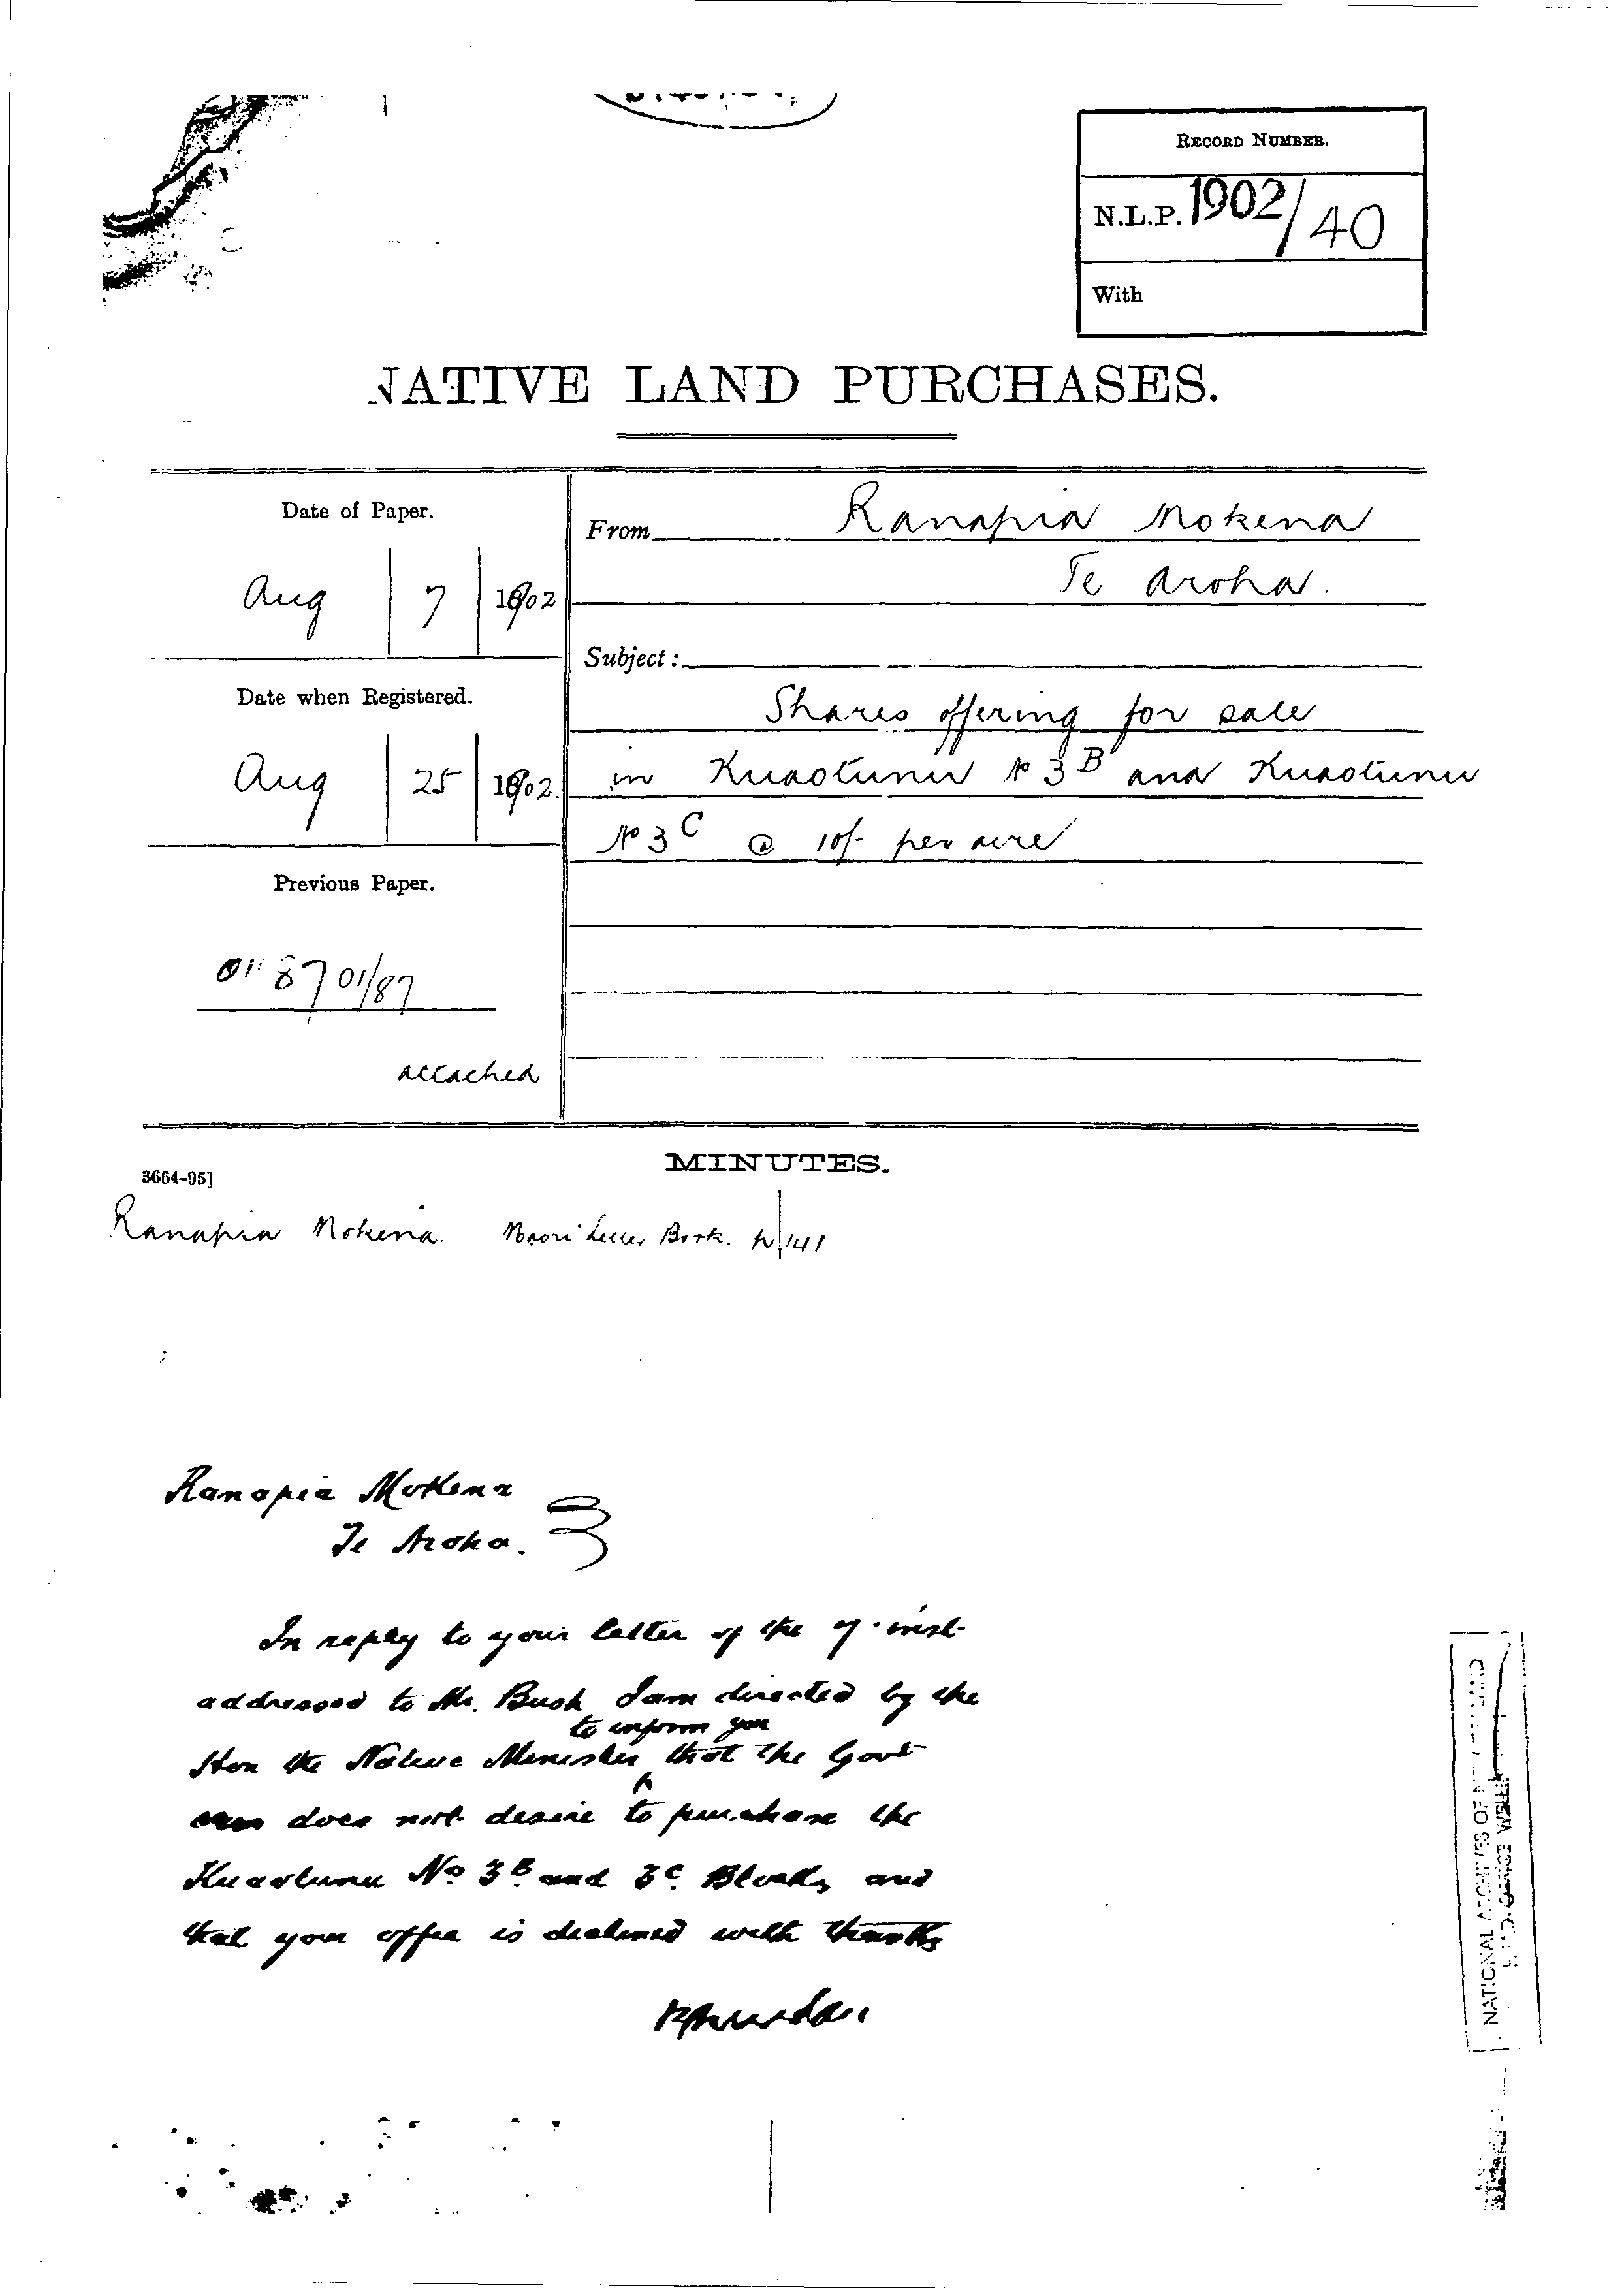 RECORD NUMBER.
N.L.P. 1902/40
With
NATIVE LAND PURCHASES.
Date of Paper.
Aug 7 1902
From Ranapia Mokena
Te Aroha.
Subject:
Shares offering for sale
in Kuaotunu No 3B and Kuaotunu
No 3C @ 10/- per acre
Date when Registered.
Aug 25 1902
Previous Paper.
01/87
attached
MINUTES.
3664-95]
Ranapia Mokena. Maori Letter Book. 141
Ranapia Mokena
Te Aroha.
In reply to your letter of the 7. inst.
addressed to Mr. Bush I am directed by the
to inform you
Hon the Native Minister that the Govt
does not desire to purchase the
Kuaotunu No 3B. and 3C. Blocks, and
that your offer is declined with thanks
NATIONAL ARCHIVES OF
HEAD OFFICE